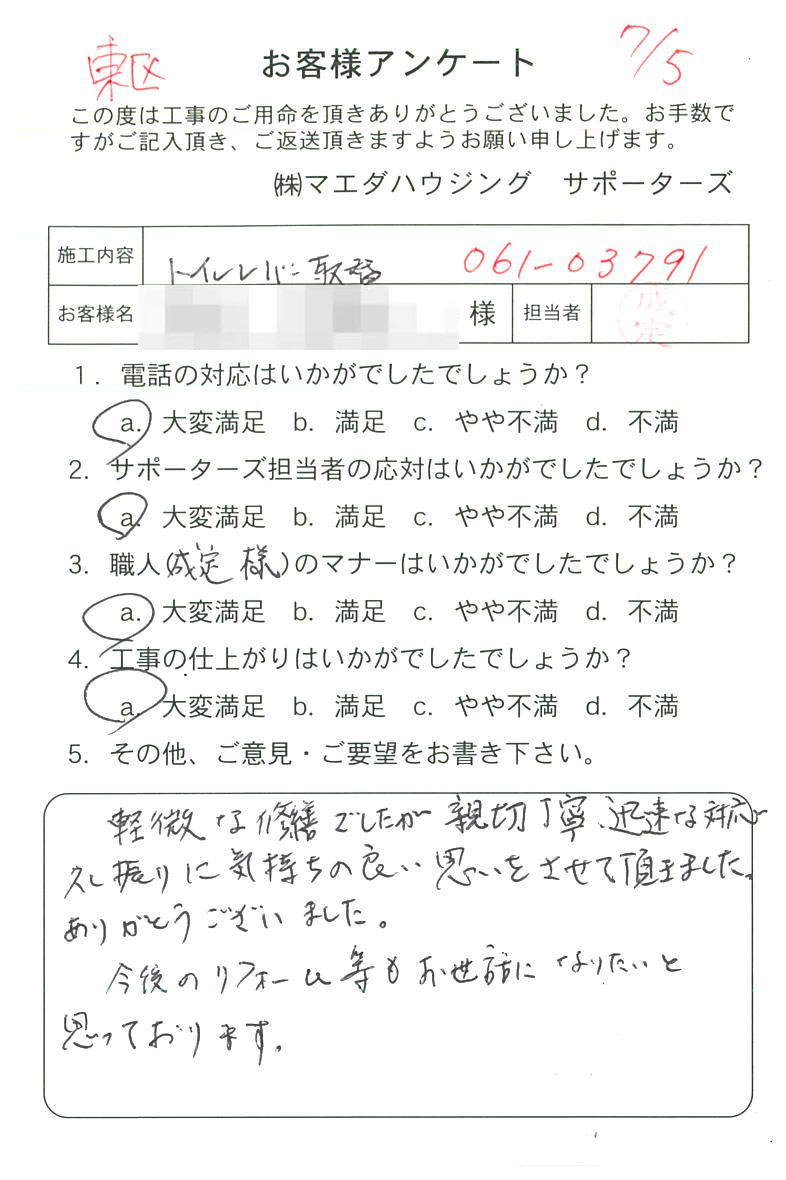 東区
7/5
お客様アンケート
この度は工事のご用命を頂きありがとうございました。お手数で
すがご記入頂き、ご返送頂きますようお願い申し上げます。
㈱マエダハウジング　サポーターズ
施工内容 トイレレバー取替 061-03791
お客様名 様 担当者 成定
1. 電話の対応はいかがでしたでしょうか？
a. 大変満足 b. 満足 c. やや不満 d. 不満
2. サポーターズ担当者の応対はいかがでしたでしょうか？
a. 大変満足 b. 満足 c. やや不満 d. 不満
3. 職人(成定 様)のマナーはいかがでしたでしょうか？
a. 大変満足 b. 満足 c. やや不満 d. 不満
4. 工事の仕上がりはいかがでしたでしょうか？
a. 大変満足 b. 満足 c. やや不満 d. 不満
5. その他、ご意見・ご要望をお書き下さい。
軽微な修繕でしたが親切丁寧、迅速な対応で
久し振りに気持ちの良い思いをさせて頂きました。
ありがとうございました。
今後のリフォーム等もお世話になりたいと
思っております。